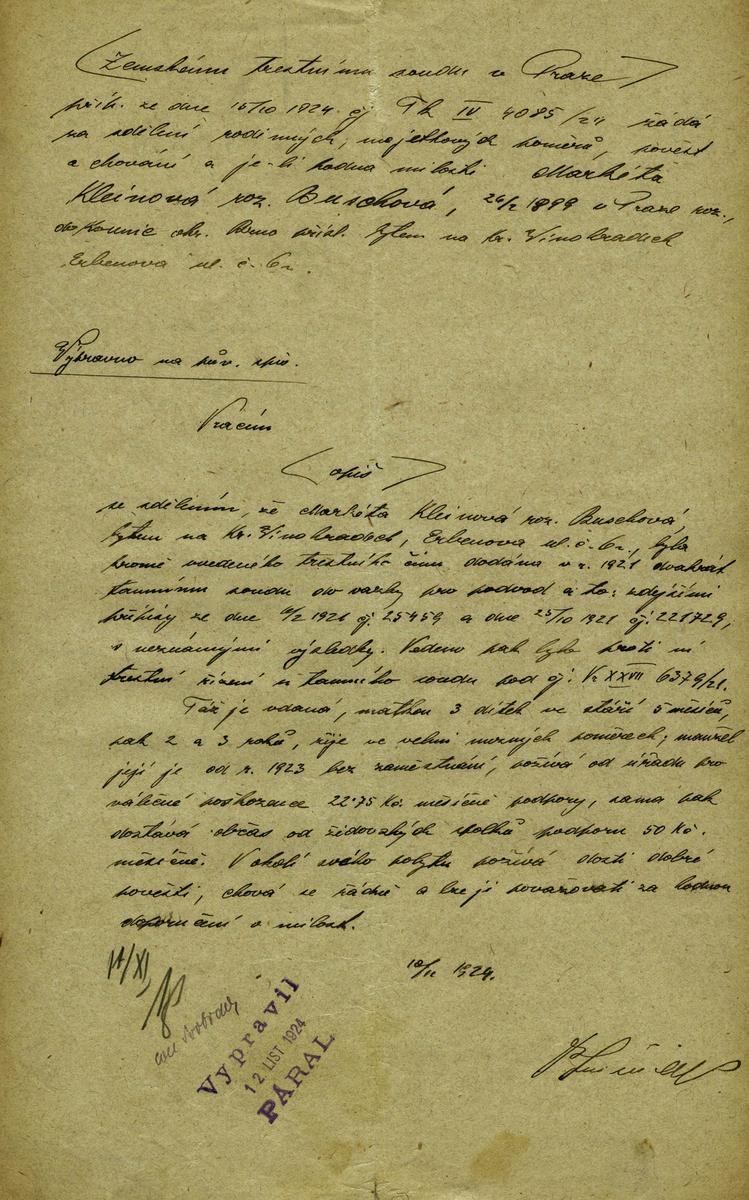 (Zemskému trestnímu soudu v Praze)
přih. ze dne 15/10 1924 čj Tk IV 4085/24 žádá
za sdělení rodinných, majetkových poměrů, pověst
a chování a je-li hodna milosti Markéta
Kleinová roz. Buschová, 26/2 1899 v Praze roz.,
do Kounic okr. Brno přísl. bytem na Kr. Vinohradech
Erbenova ul. č. 6.
Vybaveno na pův. spis.
Vracím
(opis)
se sdělením, že Markéta Kleinová roz. Buschová,
bytem na Kr. Vinohradech, Erbenova ul. č. 6., byla
kromě uvedeného trestního činu dodána v r. 1921 dvakrát
tamnímu soudu do vazby pro podvod a to: zdejšími
přípisy ze dne 4/2 1921 čj. 25459 a dne 25/10 1921 čj. 221729,
s neznámými výsledky. Vedeno pak bylo proti ní
trestní řízení u tamního soudu pod čj: Vr XXVII 6379/21.
Táž je vdaná, matkou 3 dítek ve stáří 5 měsíců,
pak 2 a 3 roků, žije ve velmi nuzných poměrech; manžel
její je od r. 1923 bez zaměstnání, požívá od úřadu pro
válečné poškozence 22.75 Kč. měsíčně podpory, sama pak
dostává občas od židovských spolků podporu 50 Kč.
měsíčně. V okolí svého pobytu požívá dosti dobré
pověsti, chová se řádně a lze ji považovati za hodnou
doporučení v milost.
10/11 1924.
11/XI
Vypravil
12 LIST 1924
PÁRAL